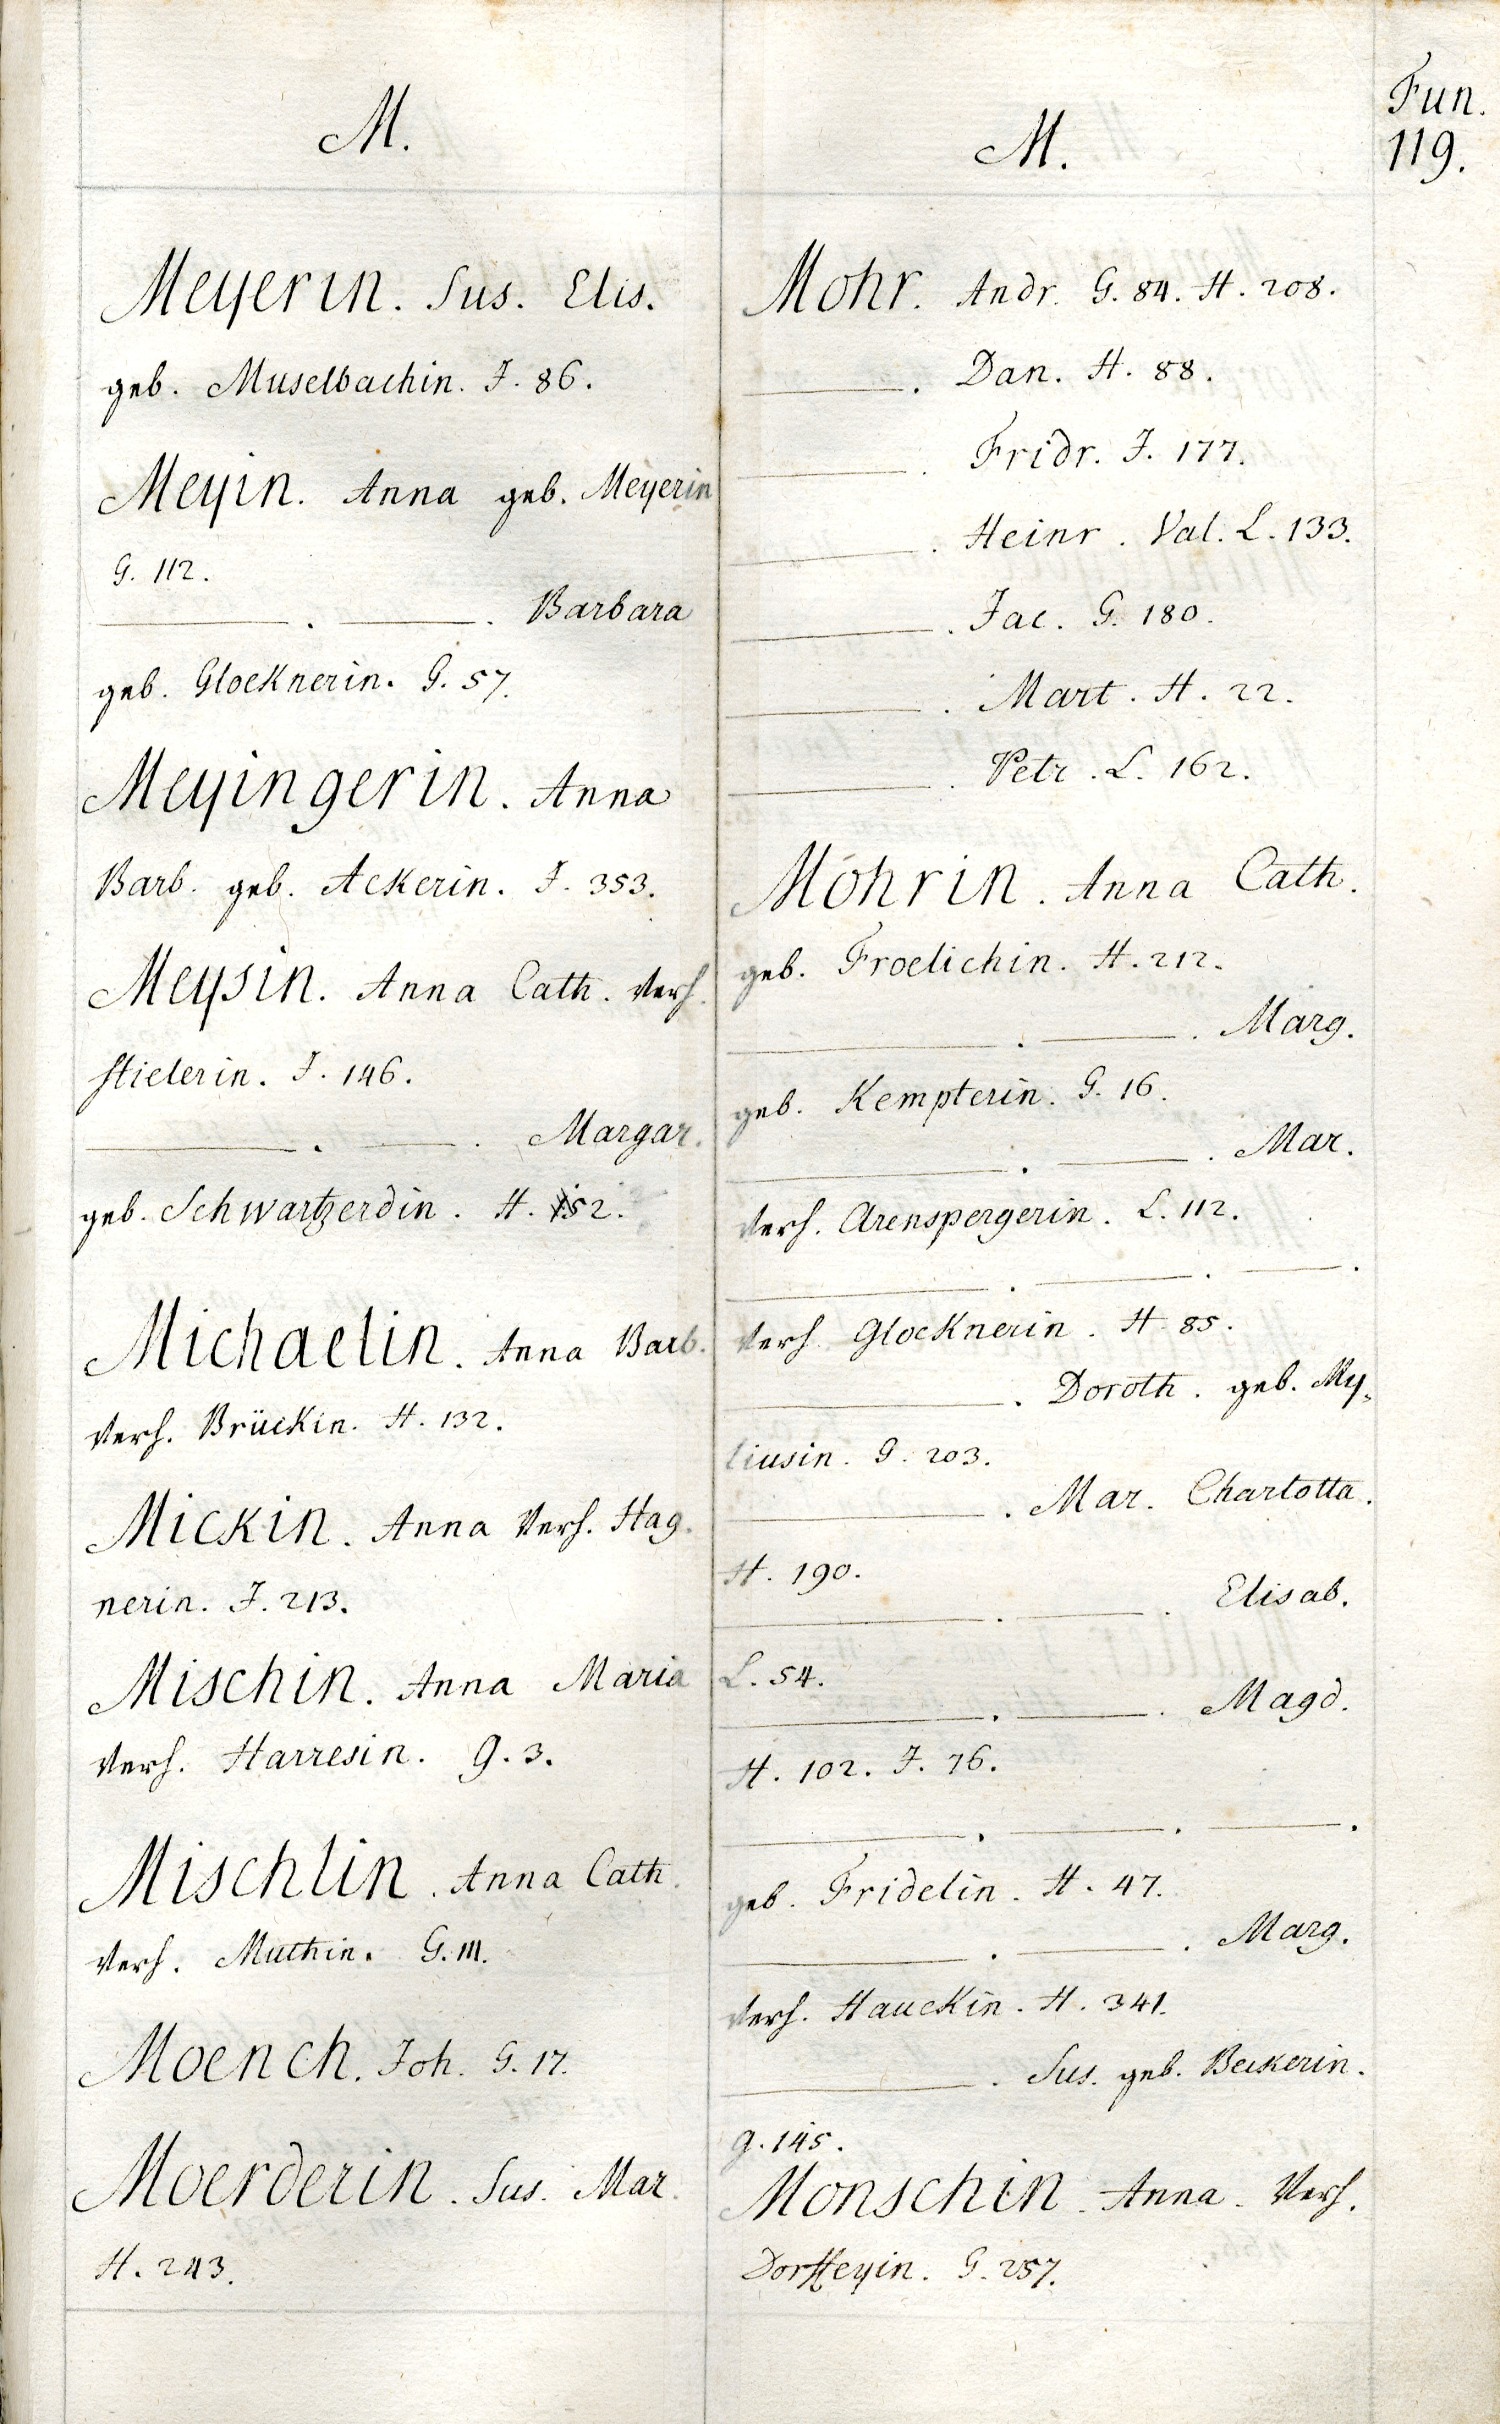 M.
Meyerin. Sus. Elis.
geb. Muselbachin. J. 86.
Meyin. Anna geb. Meyerin
G. 112.
———. ———. Barbara
geb. Glocknerin. G. 57.
Meyingerin. Anna
Barb. geb. Ackerin. J. 353.
Meysin. Anna Cath. Verh.
Stielerin. J. 146.
———. ———. Margar.
geb. Schwartzerdin. H. 52.
Michaelin. Anna Barb.
Verh. Brückin. H. 132.
Mickin. Anna Verh. Hag.
nerin. J. 213.
Mischin. Anna Maria
Verh. Harresin. G. 3.
Mischlin. Anna Cath.
Verh. Muthin. G. 111.
Moench. Joh. G. 17.
Moerderin. Sus. Mar.
H. 243.
M.
Mohr. Andr. G. 84. H. 208.
———. Dan. H. 88.
———. Fridr. J. 177.
———. Heinr. Val. L. 133.
———. Jac. G. 180.
———. Mart. H. 22.
———. Petr. L. 162.
Mohrin. Anna Cath.
geb. Froelichin. H. 212.
———. ———. Marg.
geb. Kempterin. G. 16.
———. ———. Mar.
Verh. Arenspergerin. L. 112.
———. ———. ———.
Verh. Glocknerin. H. 85.
———. Doroth. geb. My,
liusin. G. 203.
———. Mar. Charlotta.
H. 190.
———. ———. Elisab.
L. 54.
———. ———. Magd.
H. 102. J. 76.
———. ———. ———.
geb. Fridelin. H. 47.
———. ———. Marg.
Verh. Hauckin. H. 341.
———. Sus. geb. Beckerin.
G. 145.
Monschin. Anna. Verh.
Dorffeyin. G. 257.
Fun.
119.